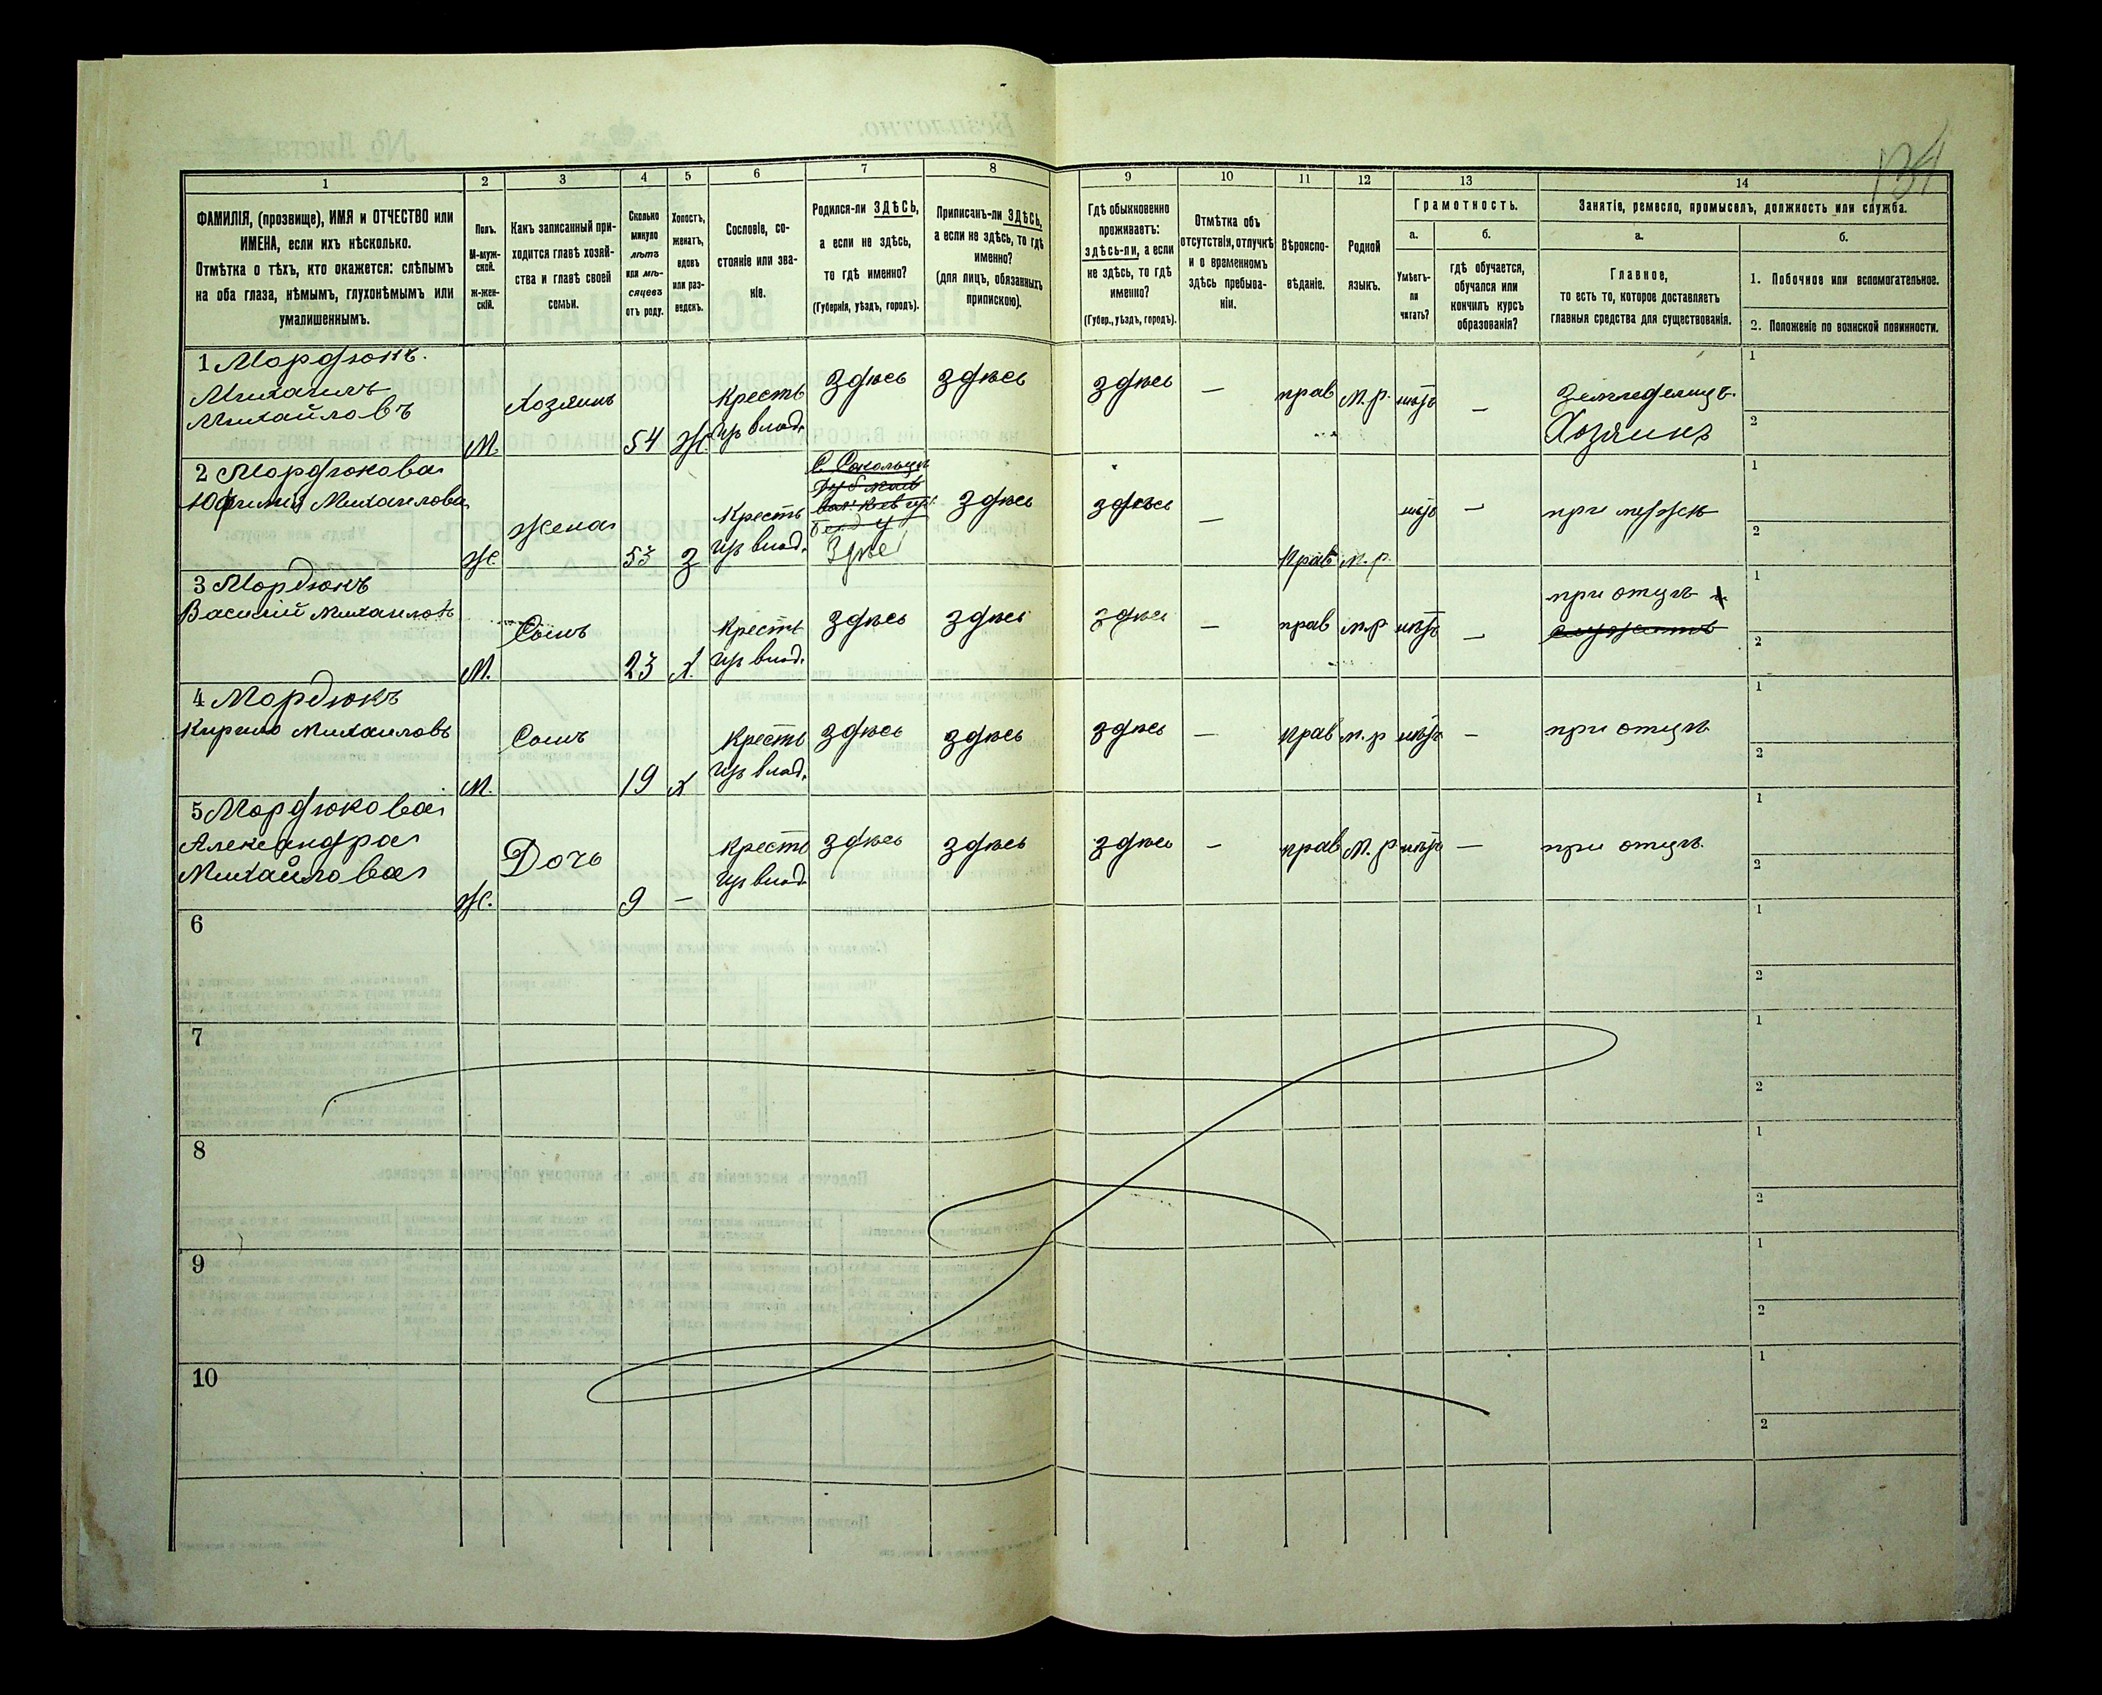 134
1
2
3
4
5
6
7
8
9
10
11
12
13
14
ФАМИЛІЯ, (прозвище), ИМЯ и ОТЧЕСТВО или
ИМЕНА, если ихъ нѣсколько.
Отмѣтка о тѣхъ, кто окажется: слѣпымъ
на оба глаза, нѣмымъ, глухонѣмымъ или
умалишеннымъ.
Полъ.
М-муж-
ской.
ж-жен-
скій.
Какъ записанный при-
ходится главѣ хозяй-
ства и главѣ своей
семьи.
Сколько
минуло
лѣтъ
или мѣ-
сяцевъ
отъ роду.
Холостъ,
женатъ,
вдовъ
или раз-
веденъ.
Сословіе, со-
стояніе или зва-
ніе.
Родился-ли ЗДѢСЬ,
а если не здѣсь,
то гдѣ именно?
(Губернія, уѣздъ, городъ).
Приписанъ-ли ЗДѢСЬ,
а если не здѣсь, то гдѣ
именно?
(для лицъ, обязанныхъ
припискою).
Гдѣ обыкновенно
проживаетъ:
здѣсь-ли, а если
не здѣсь, то гдѣ
именно?
(Губер., уѣздъ, городъ).
Отмѣтка объ
отсутствіи, отлучкѣ
и о временномъ
здѣсь пребыва-
ніи.
Вѣроиспо-
вѣданіе.
Родной
языкъ.
Грамотность.
а.
Умѣетъ-
ли
читать?
б.
гдѣ обучается,
обучался или
кончилъ курсъ
образованія?
Занятіе, ремесло, промыселъ, должность или служба.
а.
Главное,
то есть то, которое доставляетъ
главныя средства для существованія.
б.
1. Побочное или вспомогательное.
2. Положеніе по воинской повинности.
1 Мордюкъ.
Михаилъ
Михайловъ
М.
Хозяинъ
54
Ж.
Кресть
изъ влад.
здѣсь
здѣсь
здѣсь
—
прав
м.р.
нѣтъ
—
Земледелецъ.
Хозяинъ
1
2
2 Мордюкова
Юфимия Михаилова
Ж
Жена
53
З
Кресть
изъ влад.
С. Сокольцы
Здѣсь
здѣсь
здѣсь
—
прав
м.р.
нѣтъ
—
при мужѣ
1
2
3 Мордюкъ
Василий Михаиловъ
М.
Сынъ
23
Х.
Кресть
изъ влад.
здѣсь
здѣсь
здѣсь
—
прав
м.р
нѣтъ
—
при отцѣ
1
2
4 Мордюкъ
Кирило Михаиловъ
М.
Сынъ
19
Х
Кресть
изъ влад.
здѣсь
здѣсь
здѣсь
—
прав
м.р
нѣтъ
—
при отцѣ
1
2
5 Мордюкова
Александра
Михайлова
Ж.
Дочь
9
—
Кресть
изъ влад.
здѣсь
здѣсь
здѣсь
—
прав
м.р
нѣтъ
—
при отцѣ.
1
2
6
1
2
7
1
2
8
1
2
9
1
2
10
1
2